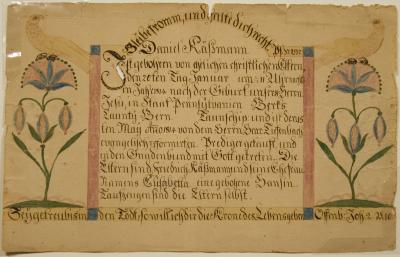 Bleibe fromm, und halte dich recht Ps: 37. v 37
Daniel Käßmann
Ist gebohren von
den 20ten Tag Januar um 11 Uhr
im Jahr nach der Geburt unsers Herrn
Jesu, in Staat Pennsylvanien Berks
Caunty Bern Taunschip und ist den
ten May von dem Herrn
evangelisch reformirten Prediger getauft und
in den Gnadenbund mit Gott getreten Die
Eltern sind Friedrich Käßmann und seine Ehefrau
Namens Elisabetha eine gebohrne
Taufzeugen sind die Eltern selbst
Sey getreu bis in den Todt, so will ich dir die Krone des Lebens geben Offenb: Joh: 2. v. 10